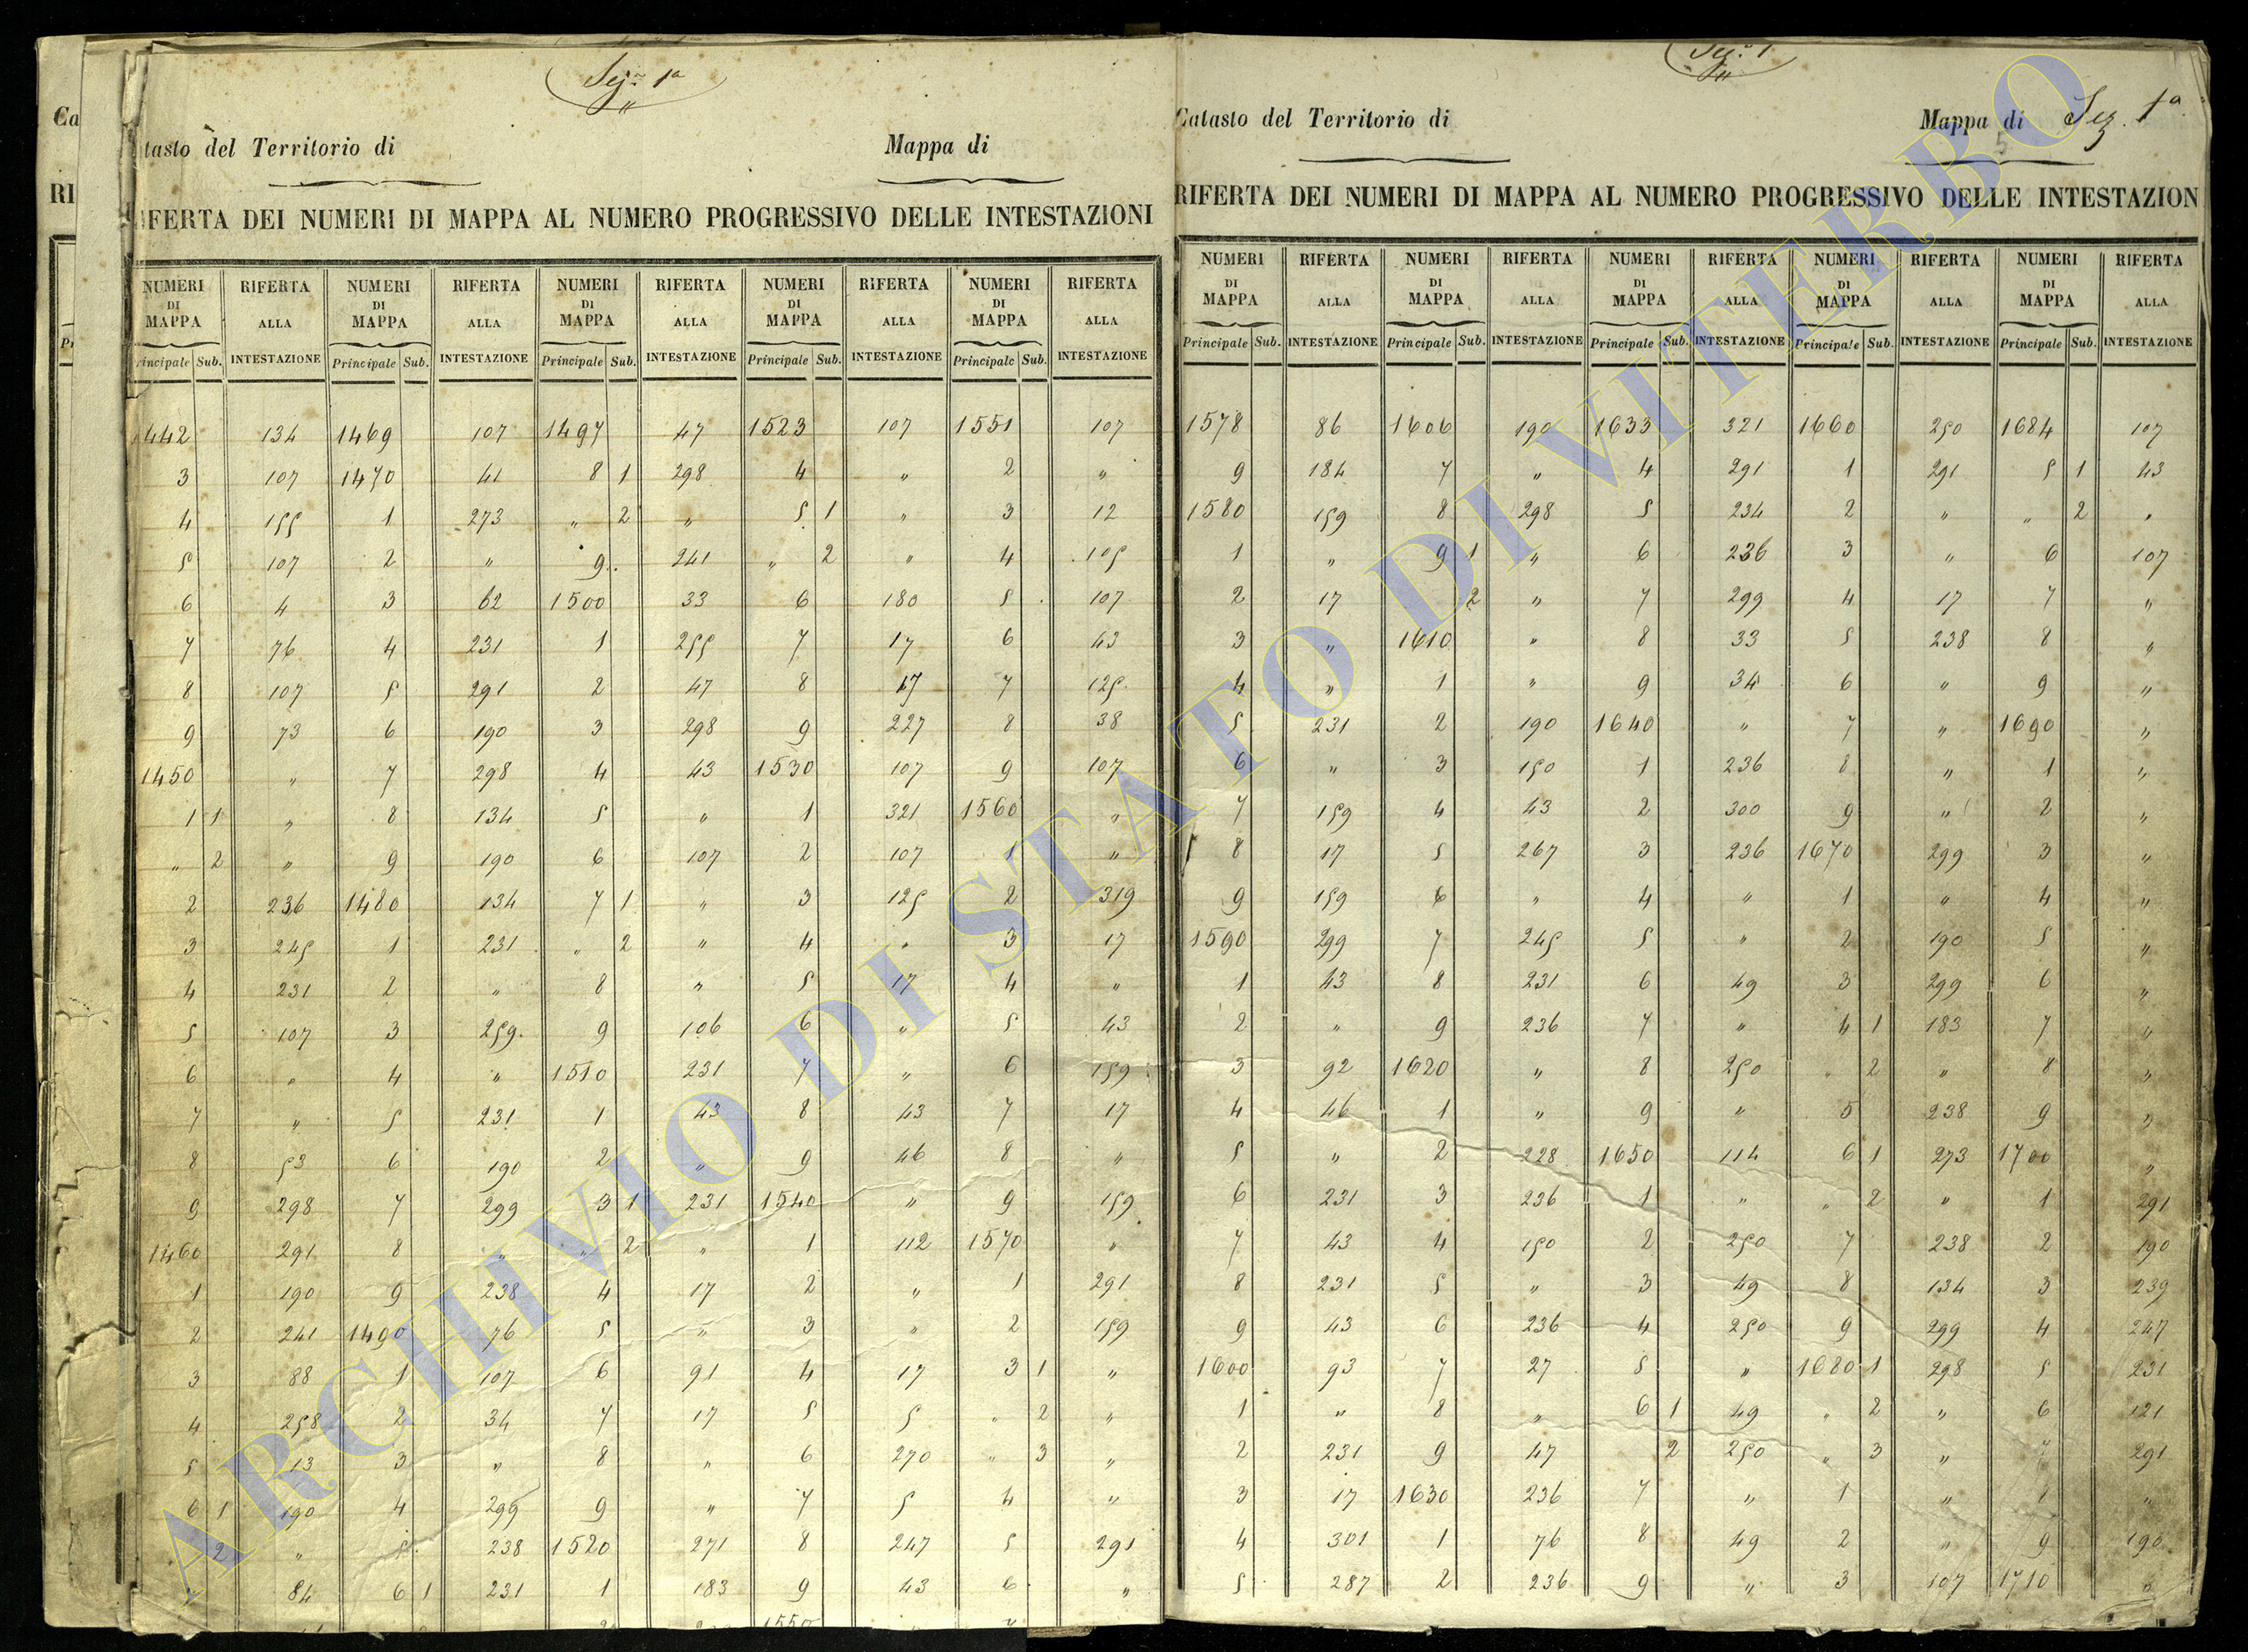 Sez.ne 1a
Catasto del Territorio di
Mappa di
RIFERTA DEI NUMERI DI MAPPA AL NUMERO PROGRESSIVO DELLE INTESTAZIONI
NUMERI RIFERTA NUMERI RIFERTA NUMERI RIFERTA NUMERI RIFERTA NUMERI RIFERTA
DI DI DI DI DI
MAPPA ALLA MAPPA ALLA MAPPA ALLA MAPPA ALLA MAPPA ALLA
Principale Sub. INTESTAZIONE Principale Sub. INTESTAZIONE Principale Sub. INTESTAZIONE Principale Sub. INTESTAZIONE Principale Sub. INTESTAZIONE
1442 134 1469 107 1497 47 1523 107 1551 107
3 107 1470 41 8 1 298 4 " 2 "
4 155 1 273 " 2 " 5 1 " 3 12
5 107 2 " 9 241 " 2 " 4 105
6 4 3 62 1500 33 6 180 5 107
7 76 4 231 1 255 7 17 6 43
8 107 5 291 2 47 8 17 7 125
9 73 6 190 3 298 9 227 8 38
1450 " 7 298 4 43 1530 107 9 107
1 1 " 8 134 5 " 1 321 1560 "
" 2 " 9 190 6 107 2 107 1 "
2 236 1480 134 7 1 " 3 125 2 319
3 245 1 231 " 2 " 4 " 3 17
4 231 2 " 8 " 5 17 4 "
5 107 3 259 9 106 6 " 5 43
6 " 4 " 1510 231 7 " 6 159
7 " 5 231 1 43 8 43 7 17
8 53 6 190 2 " 9 46 8 "
9 298 7 299 3 1 231 1540 " 9 159
1460 291 8 " " 2 " 1 112 1570 "
1 190 9 238 4 17 2 " 1 291
2 241 1490 76 5 " 3 " 2 159
3 88 1 107 6 91 4 17 3 1 "
4 258 2 34 7 17 5 5 " 2 "
5 13 3 " 8 " 6 270 " 3 "
6 1 190 4 299 9 " 7 5 4 "
2 " 5 238 1520 271 8 247 5 291
84 6 1 231 1 183 9 43 6 "
1550
Sez.e 1
Catasto del Territorio di
Mappa di Sez. 1a
5
RIFERTA DEI NUMERI DI MAPPA AL NUMERO PROGRESSIVO DELLE INTESTAZION
NUMERI RIFERTA NUMERI RIFERTA NUMERI RIFERTA NUMERI RIFERTA NUMERI RIFERTA
DI DI DI DI DI
MAPPA ALLA MAPPA ALLA MAPPA ALLA MAPPA ALLA MAPPA ALLA
Principale Sub. INTESTAZIONE Principale Sub. INTESTAZIONE Principale Sub. INTESTAZIONE Principale Sub. INTESTAZIONE Principale Sub. INTESTAZIONE
1578 86 1606 190 1633 321 1660 250 1684 107
9 184 7 " 4 291 1 291 5 1 43
1580 159 8 298 5 234 2 " " 2 "
1 " 9 1 " 6 236 3 " 6 107
2 17 2 " 7 299 4 17 7 "
3 " 1610 " 8 33 5 238 8 "
4 " 1 " 9 34 6 " 9 "
5 231 2 190 1640 " 7 " 1690 "
6 " 3 150 1 236 8 " 1 "
7 159 4 43 2 300 9 " 2 "
8 17 5 267 3 236 1670 299 3 "
9 159 6 " 4 " 1 " 4 "
1590 299 7 245 5 " 2 190 5 "
1 43 8 231 6 49 3 299 6 "
2 " 9 236 7 " 4 1 183 7 "
3 92 1620 " 8 250 " 2 " 8 "
4 46 1 " 9 " 5 238 9 "
5 " 2 228 1650 114 6 1 273 1700 "
6 231 3 236 1 " " 2 " 1 291
7 43 4 150 2 250 7 238 2 190
8 231 5 " 3 49 8 134 3 239
9 43 6 236 4 250 9 299 4 247
1600 93 7 27 5 " 1680 1 298 5 231
1 " 8 " 6 1 49 " 2 " 6 121
2 231 9 47 2 250 " 3 " 7 291
3 17 1630 236 7 " 1 " "
4 301 1 76 8 49 2 " 9 190
5 287 2 236 9 " 3 107 1710 "
Ca
RI
ARCHIVIO DI STATO DI VITERBO